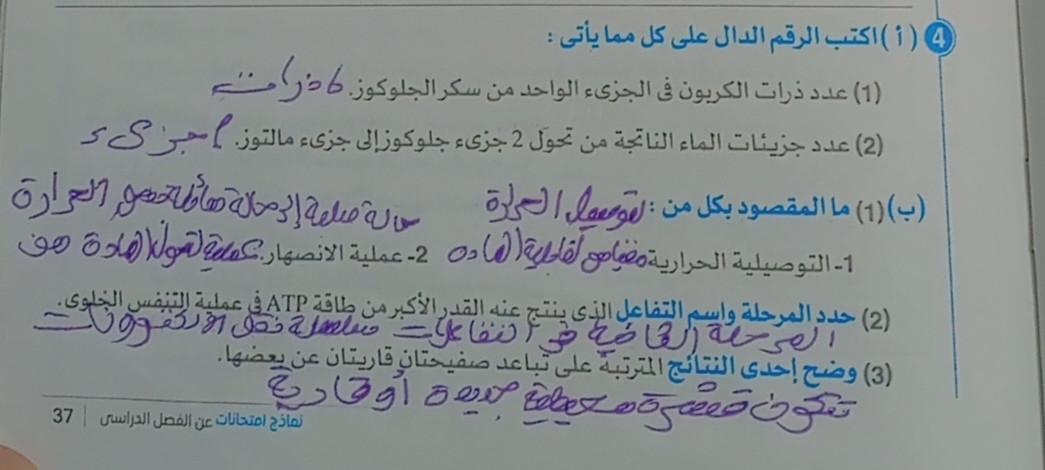 4 (أ) اكتب الرقم الدال على كل مما يأتى :
(1) عدد ذرات الكربون فى الجزىء الواحد من سكر الجلوكوز. 6 ذرات
(2) عدد جزيئات الماء الناتجة من تحول 2 جزىء جلوكوز إلى جزىء مالتوز. 1 جزىء
(ب) (1) ما المقصود بكل من : توصيل الحرارة حالة صلبة إلى حالة سائلة الحرارة
1- التوصيلية الحرارية مقياس لقابلية المادة 2- عملية الانصهار. عملية تحول المادة من
(2) حدد المرحلة واسم التفاعل الذى ينتج عنه القدر الأكبر من طاقة ATP فى عملية التنفس الخلوى.
المرحلة من التفاعلات سلسلة نقل الالكترونات
(3) وضح إحدى النتائج المترتبة على تباعد صفيحتان قاريتان عن بعضها.
تتكون قشرة محيطية جديدة أو قارية
نماذج امتحانات عن الفصل الدراسى | 37